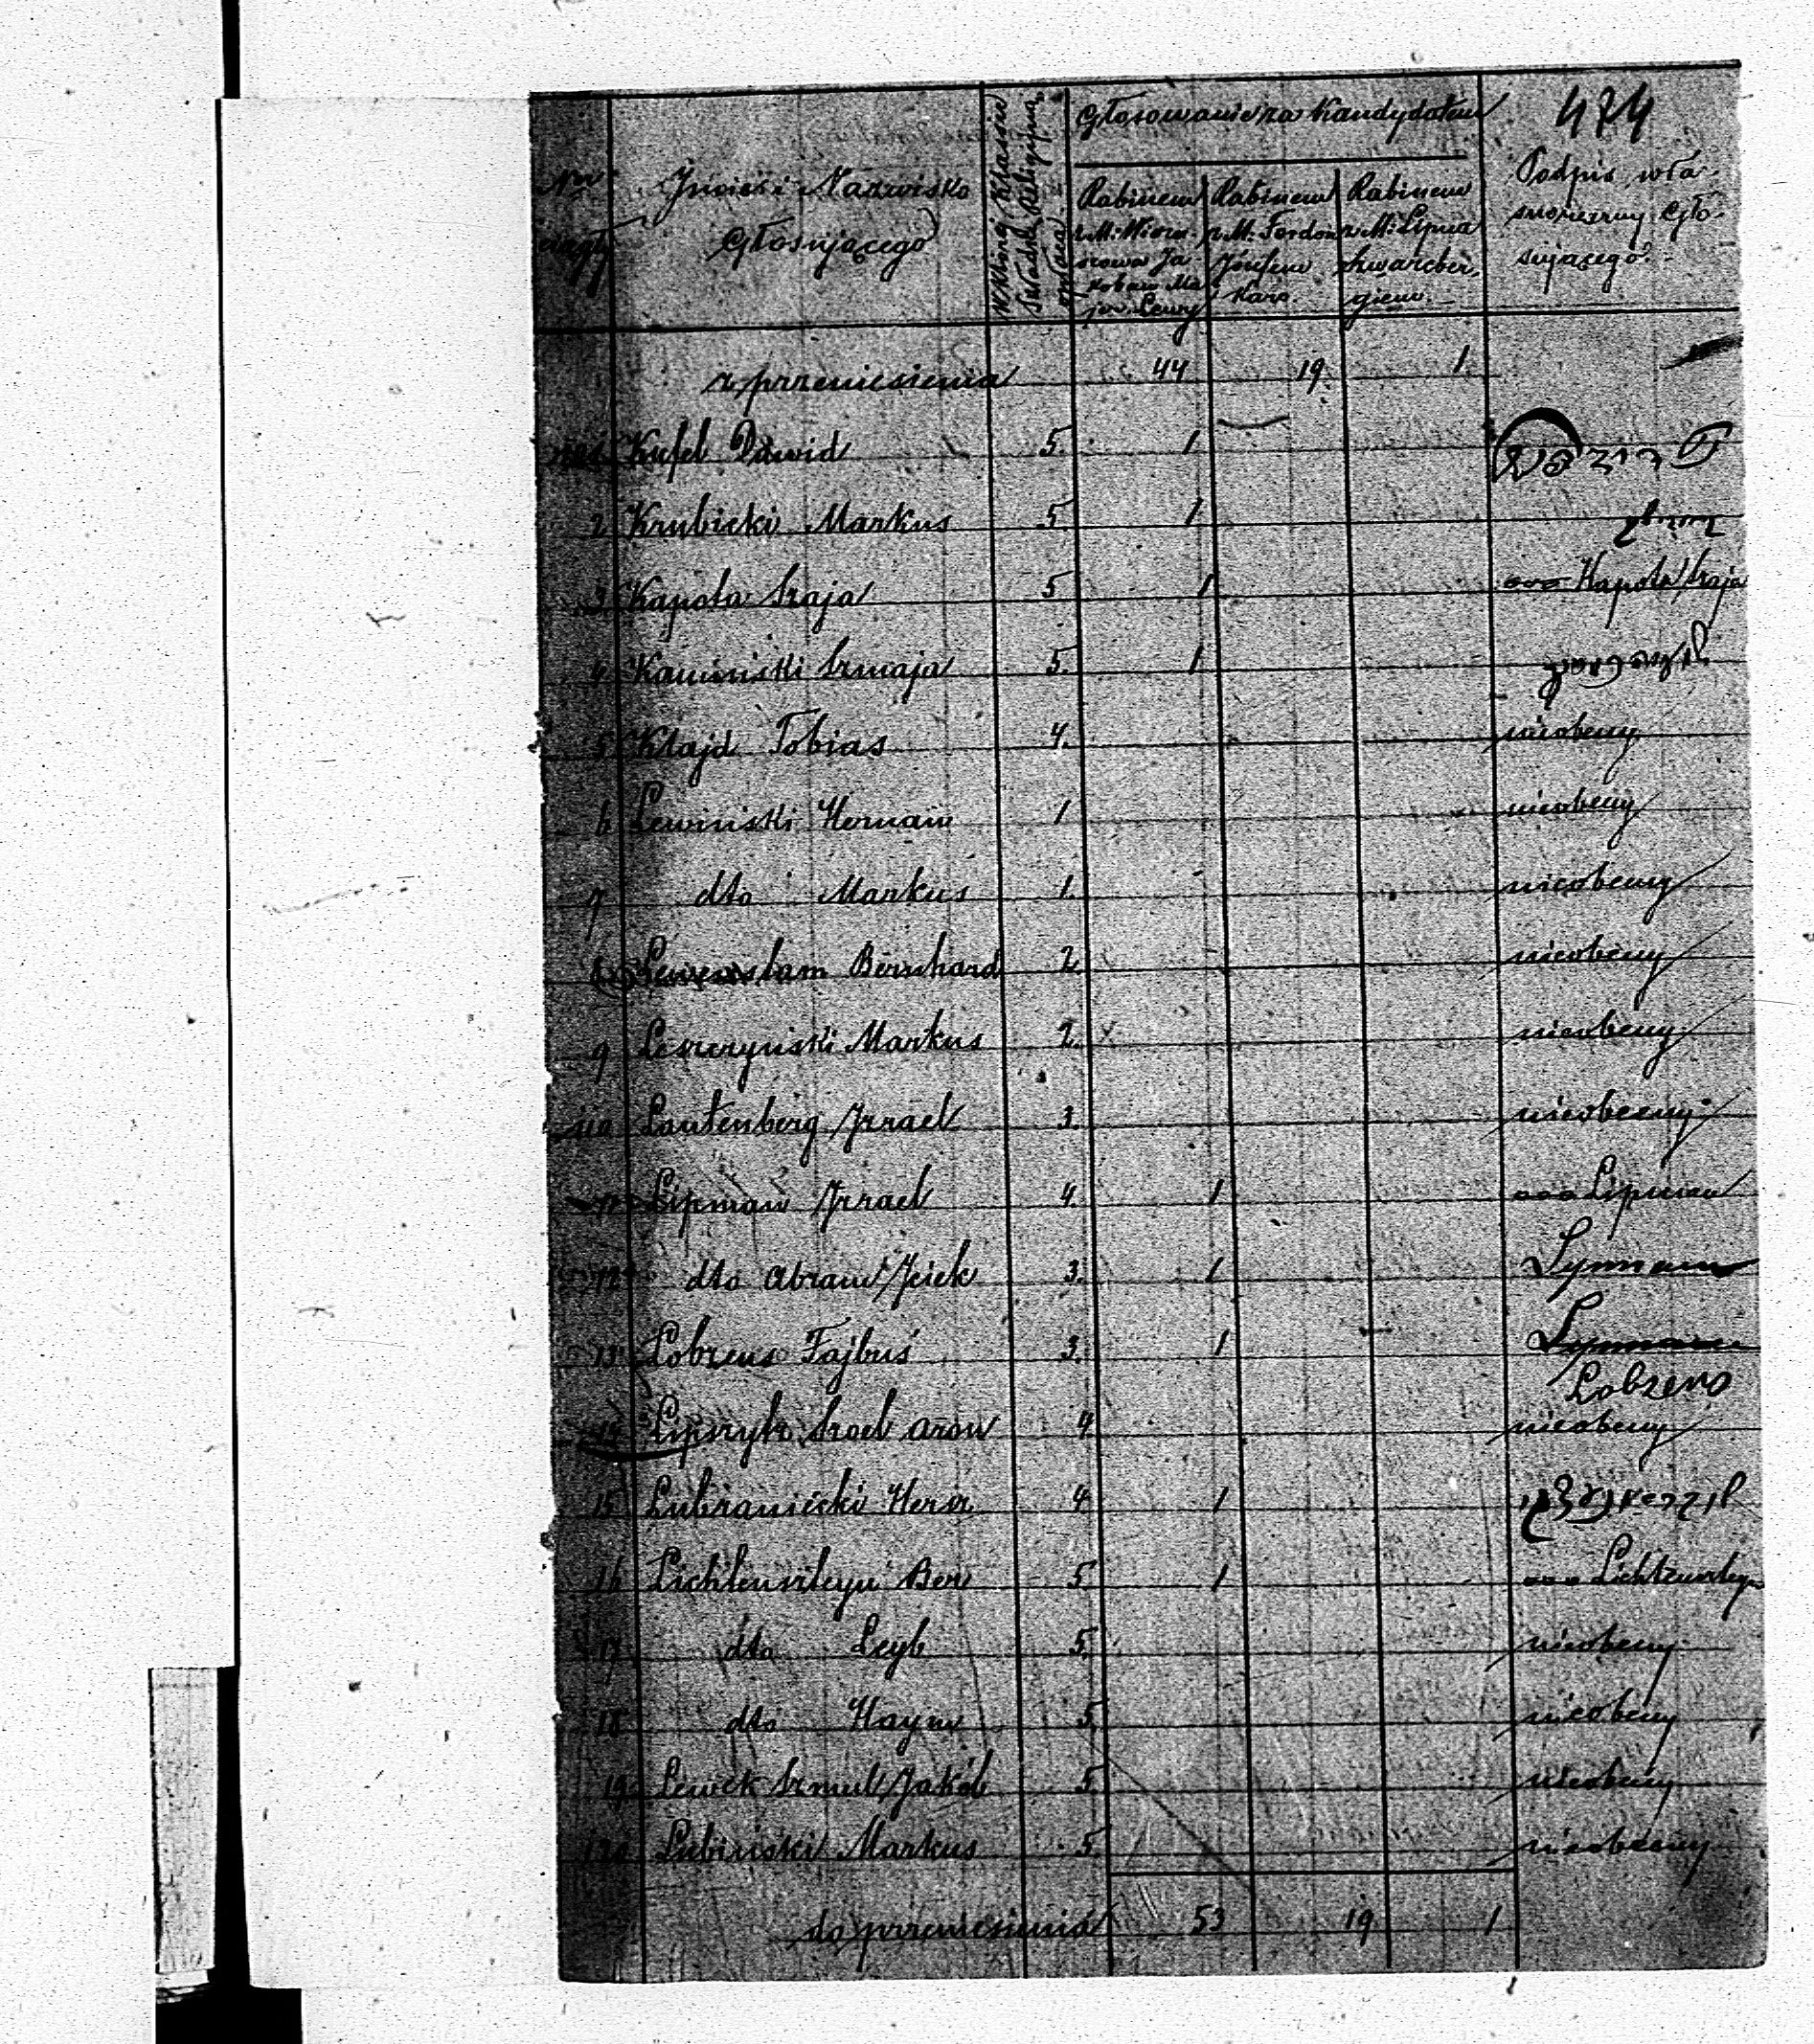 474
Głosowanie za Kandydatem
Imie i Nazwisko
Głosującego
W której Klassie
Składki Religijna
opłaca
Rabinem
Rabinem
z M. Fordon
Józefem
Karo.
Rabinem
z M. Lipna
Szwarcber-
giem.
Podpis wła-
snoręczny Gło-
sującego.
z przeniesienia 44 19. 1
Kufel Dawid 5. 1
2 Krubicki Markus 5. 1
3 Kapota Szaja 5 1 ooo Kapota Szaja
4 Kaminski Szmaja 5. 1
5 Klajd Tobias 4. nieobecny
6 Lewinski Herman 1 nieobecny
7 dto Markus 1. nieobecny
8 Lewenstam Bernhard 2 nieobecny
9 Leszczynski Markus 2. nieobecny
110 Lautenberg Izrael 3. nieobecny
11 Lipman Izrael 4. 1 ooo Lipman
12 dto Abram Icick 3. 1 Lypmann
13 Lobzens Fajbus 3. 1 Lypmann
Lobzens
14 Lipszytz Sroel Aron 4 nieobecny
15 Lubraniecki Hersz 4 1
16 Lichtensteyn Ber 5. 1 ooo Lichtensteyn
17 dto Leyb 5. nieobecny
18 dto Haym 5 nieobecny
19 Lewek Szmul Jakób 5 nieobecny
120 Lubinski Markus 5. nieobecny
do przeniesienia 53 19 1